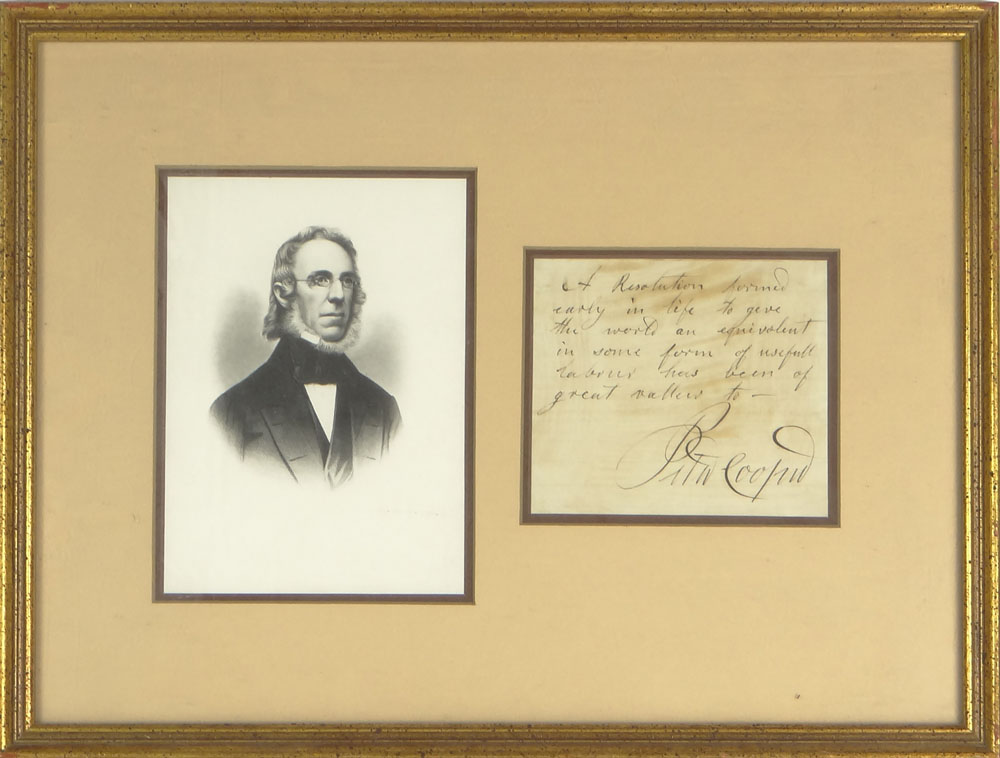 A Resolution formed
early in life to geve
the world an equivalent
in some form of usefull
labour has been of
great vallue to —
Peter Cooper